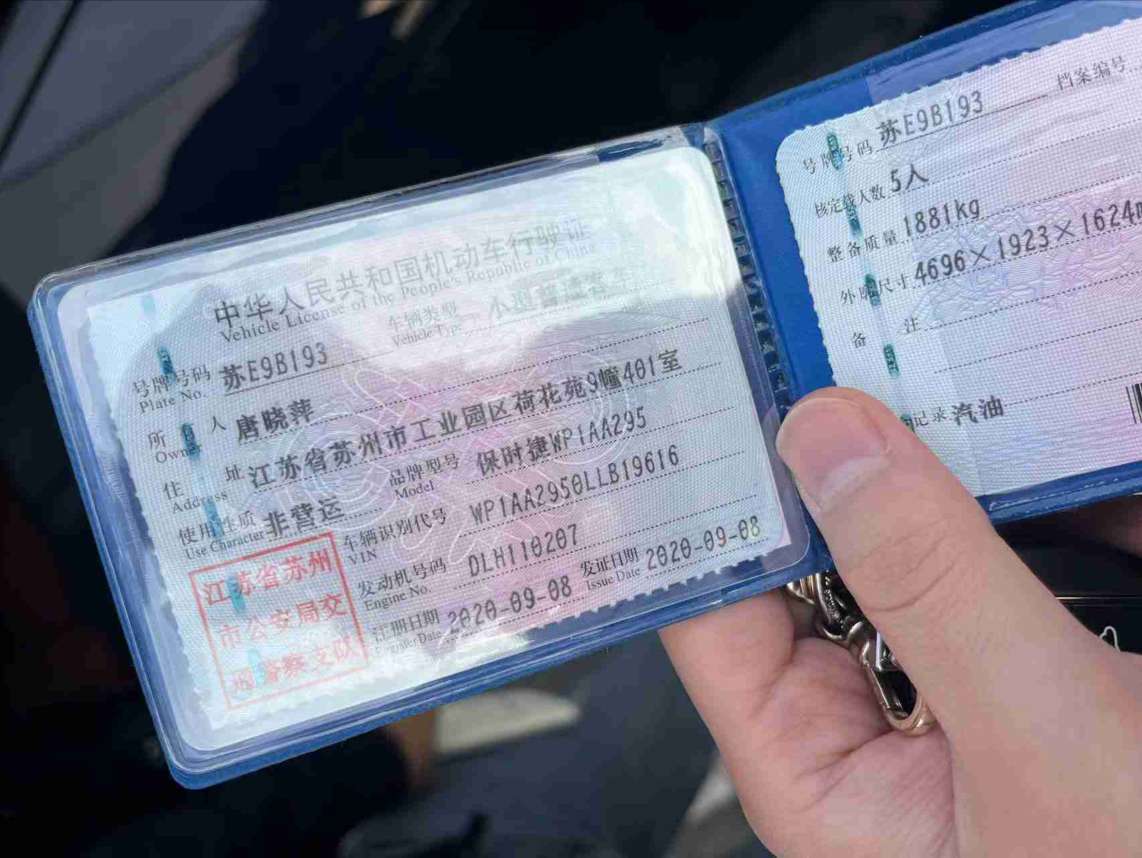 中华人民共和国机动车行驶证
Vehicle License of the People's Republic of China
号牌号码 苏E9B193 车辆类型 小型普通客车
Plate No. Vehicle Type
所有人 唐晓萍
Owner
住址 江苏省苏州市工业园区荷花苑9幢401室
Address
使用性质 非营运 品牌型号 保时捷WP1AA295
Use Character Model
车辆识别代号 WP1AA2950LLB19616
VIN
发动机号码 DLH110207
Engine No.
注册日期 2020-09-08 发证日期 2020-09-08
Register Date Issue Date
江苏省苏州
市公安局交
通警察支队
号牌号码 苏E9B193 档案编号
核定载人数 5人
整备质量 1881kg
外廓尺寸 4696×1923×1624
备注
记录 汽油